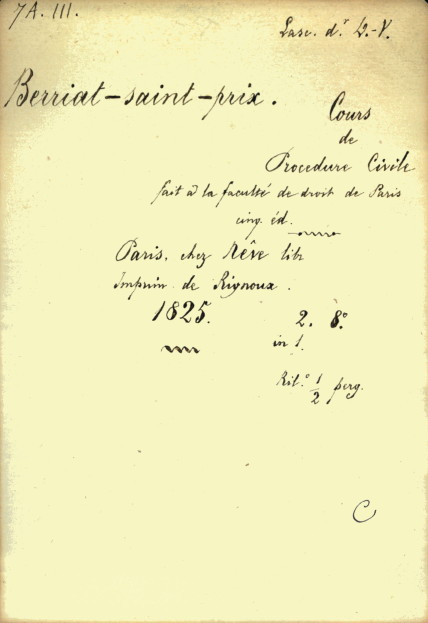 7A. III.
Lasc. d.r D.-V.
Berriat-saint-prix.
Cours
de
Procedure Civile
fait à la faculté de droit de Paris
cinq. éd.
Paris, chez Nêve lib
Imprim. de Rignoux.
1825.
2. 8.o
in 1.
Ril.o 1/2 perg.
C